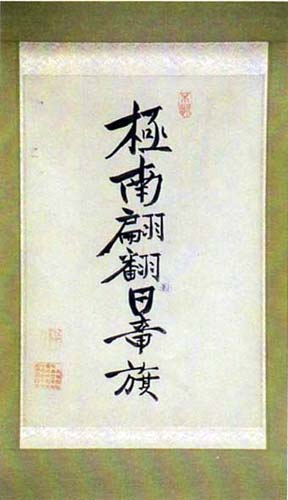 極南翩翻日章旗